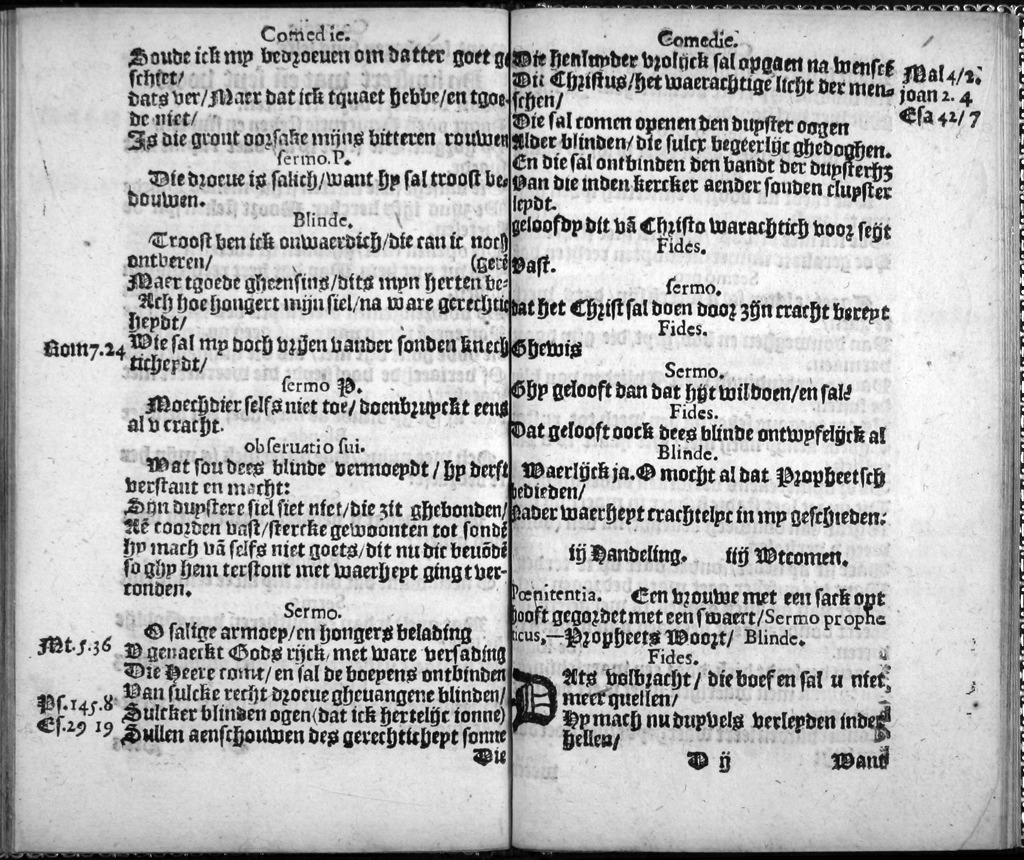 Comedie.
Soude ick my bedroeuen om datter goet ge
schiet/
dats ver/Maer dat ick tquaet hebbe/en tgoe-
de niet/
Is die gront oorsake mijns bitteren rouwen
sermo.P.
Die droeue is salich/want hy sal troost be-
douwen.
Blinde.
Troost ben ick onwaerdich/die can ic noch
ontberen/
(gere
Maer tgoede gheensins/dits myn herten be-
Ach hoe hongert mijn siel/na ware gerechtic
heydt/
Rom7.24
Wie sal my doch vrijen vander sonden knech
ticheydt/
sermo P.
Moechdier selfs niet toe/doenbruyckt eens
al v cracht.
obseruatio sui.
Wat sou dees blinde vermoeydt/hy derft
verstant en macht:
Syn duystere siel siet niet/die zit ghebonden/
Aē coorden vast/stercke gewoonten tot sondē
hy mach vā selfs niet goets/dit nu dic beuōdē
so ghy hem terstont met waerheyt gingt ver-
conden.
Sermo.
O salige armoey/en hongers belading
Mt.5.36
V genaeckt Gods rijck/met ware versading
Die Heere comt/en sal de boeyens ontbinden
Van sulcke recht droeue gheuangene blinden/
Ps.145.8
Sulcker blinden ogen (dat ick hertelijc ionne)
Es.29 19
Sullen aenschouwen des gerechticheyt sonne
Die
Comedie.
Die henluyder vrolijck sal opgaen na wensch
Mal 4/2.
Dit Christus/het waerachtige licht der men-
joan 2. 4
schen/
Esa 42/7
Die sal comen openen den duyster oogen
Alder blinden/die sulcx begeerlijc ghedoghen.
En die sal ontbinden den bandt der duysterhz
Van die inden kercker aender sonden cluyster
leydt.
geloofdy dit vā Christo warachtich voor seyt
Fides.
Vast.
sermo.
dat het Christ sal doen door zijn cracht bereyt
Fides.
Ghewis
Sermo.
Ghy gelooft dan dat hijt wil doen/en sal?
Fides.
Dat gelooft oock dees blinde ontwyfelijck al
Blinde.
Waerlijck ja. O mocht al dat Propheetsch
bedieden/
Nader waerheyt crachtelyc in my geschieden.
iij Handeling. iiij Wtcomen.
Pœnitentia. Een vrouwe met een sack opt
hooft gegordet met een swaert/Sermo prophe
ticus,—Propheets Woort/ Blinde.
Fides.
DAts volbracht/die boef en sal u niet
meer quellen/
Hy mach nu duyvels verleyden inder
hellen/
D ij Want